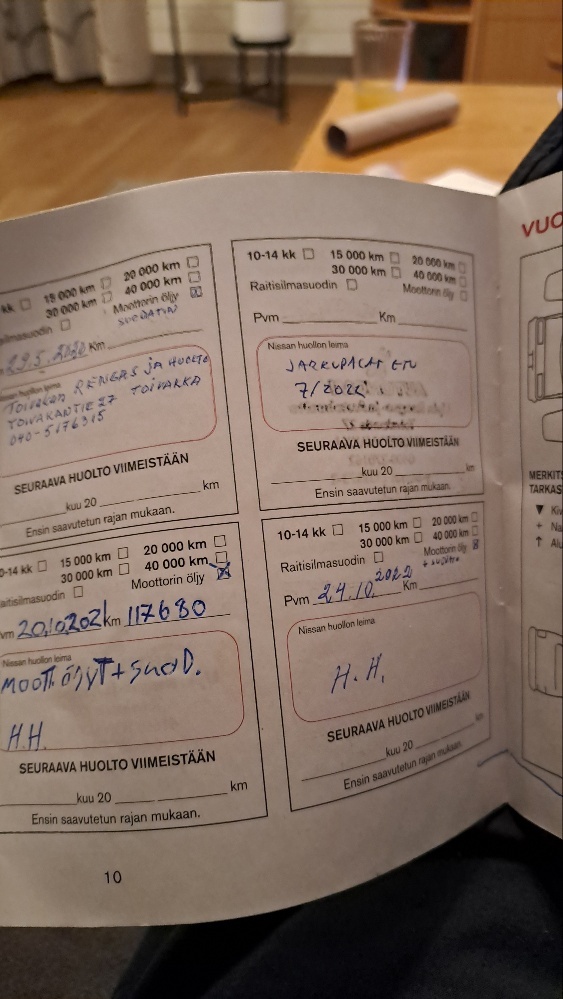 kk 15 000 km 20 000 km
30 000 km 40 000 km
Moottorin öljy
SUODATIN
29.5.2020 Km
huollon leima
Toivakan RENGAS ja HUOLTO
TOIVAKANTIE 27 TOIVAKKA
040-5176315
SEURAAVA HUOLTO VIIMEISTÄÄN
kuu 20 km
Ensin saavutetun rajan mukaan.
10-14 kk 15 000 km 20 000 km
30 000 km 40 000 km
Raitisilmasuodin Moottorin öljy
Pvm Km
Nissan huollon leima
JARRUPALAT ETU
7/2022
SEURAAVA HUOLTO VIIMEISTÄÄN
kuu 20 km
Ensin saavutetun rajan mukaan.
0-14 kk 15 000 km 20 000 km
30 000 km 40 000 km
aitisilmasuodin Moottorin öljy
vm 20.10.2021 Km 117680
Nissan huollon leima
MOOTT. öljyT + SuoD.
H.H.
SEURAAVA HUOLTO VIIMEISTÄÄN
kuu 20 km
Ensin saavutetun rajan mukaan.
10-14 kk 15 000 km 20 000 km
30 000 km 40 000 km
Raitisilmasuodin Moottorin öljy
Pvm 24.10.2022 Km
Nissan huollon leima
H.H.
SEURAAVA HUOLTO VIIMEISTÄÄN
kuu 20 km
Ensin saavutetun rajan mukaan.
10
VUO
MERKITS
TARKAS
▼ Kiv
+ Na
↑ Alu